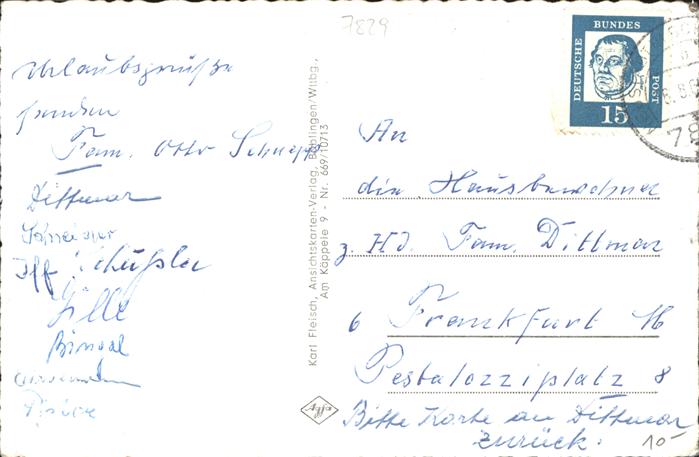 7829
Urlaubsgrüße
senden
Fam. Otto Schnepf
Dittmar
Schneider
Iff Scheufler
Hille
Karl Fleisch, Ansichtskarten-Verlag, Böblingen/Wttbg.,
Am Käppele 9 - Nr. 669/10713
DEUTSCHE BUNDES POST
15
78
An
die Hausbewohner
z. Hd. Fam. Dittmar
6 Frankfurt 16
Pestalozziplatz 8
Bitte Karte an Dittmar
zurück.
10-